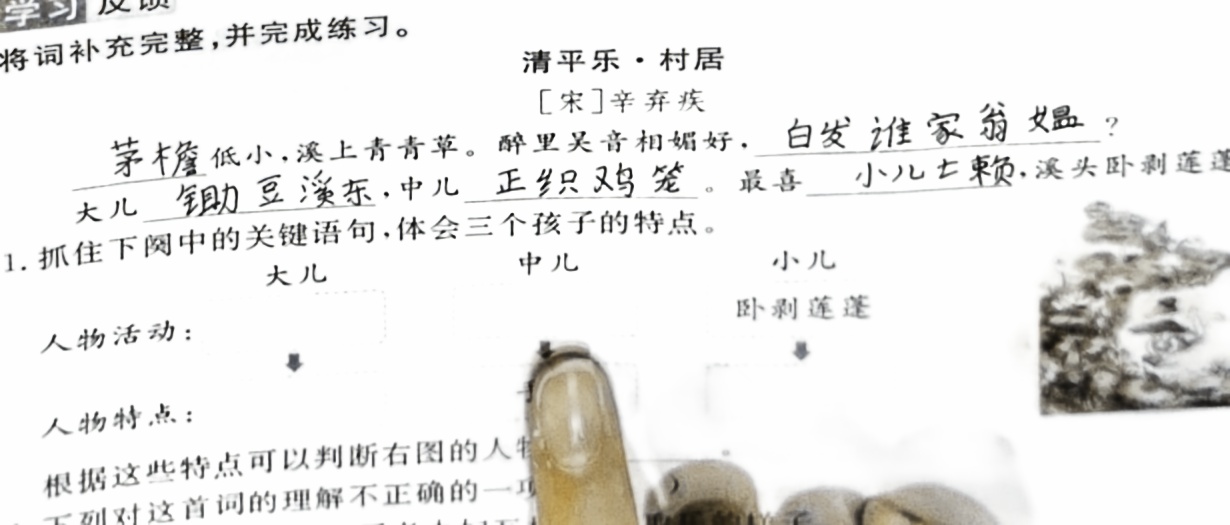 学习反馈
将词补充完整,并完成练习。
清平乐·村居
[宋]辛弃疾
茅檐低小,溪上青青草。醉里吴音相媚好,白发谁家翁媪?
大儿锄豆溪东,中儿正织鸡笼。最喜小儿亡赖,溪头卧剥莲蓬
1.抓住下阕中的关键语句,体会三个孩子的特点。
大儿 中儿 小儿
人物活动: 卧剥莲蓬
人物特点:
根据这些特点可以判断右图的人物
下列对这首词的理解不正确的一项